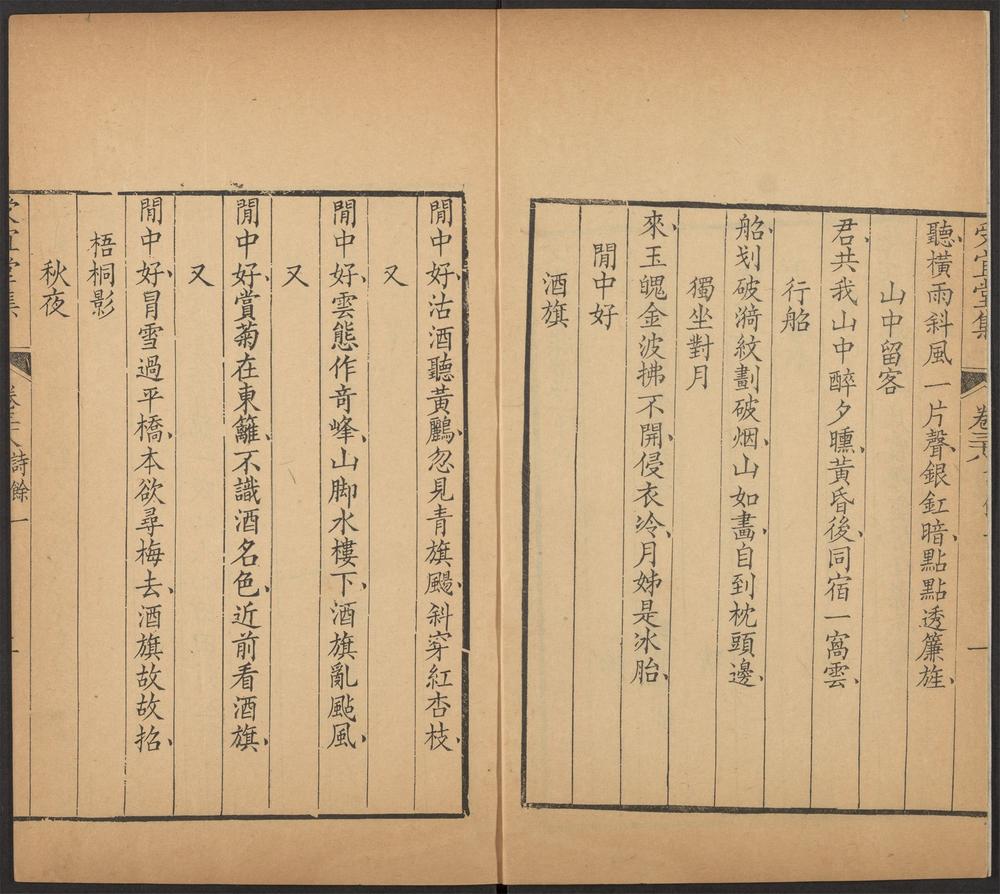 聽、橫雨斜風一片聲、銀釭暗、點點透簾旌、
山中留客
君、共我山中醉夕曛、黃昏後、同宿一窩雲、
行船
船、刬破漪紋劃破烟、山如畵、自到枕頭邊、
獨坐對月
來、玉魄金波拂不開、侵衣冷、月姊是冰胎、
閒中好
酒旗
閒中好、沽酒聽黃鸝、忽見青旗颺、斜穿紅杏枝、
又
閒中好、雲態作奇峰、山脚水樓下、酒旗亂颭風、
又
閒中好、賞菊在東籬、不識酒名色、近前看酒旗、
又
閒中好、冒雪過平橋、本欲尋梅去、酒旗故故招、
梧桐影
秋夜
詩餘 一